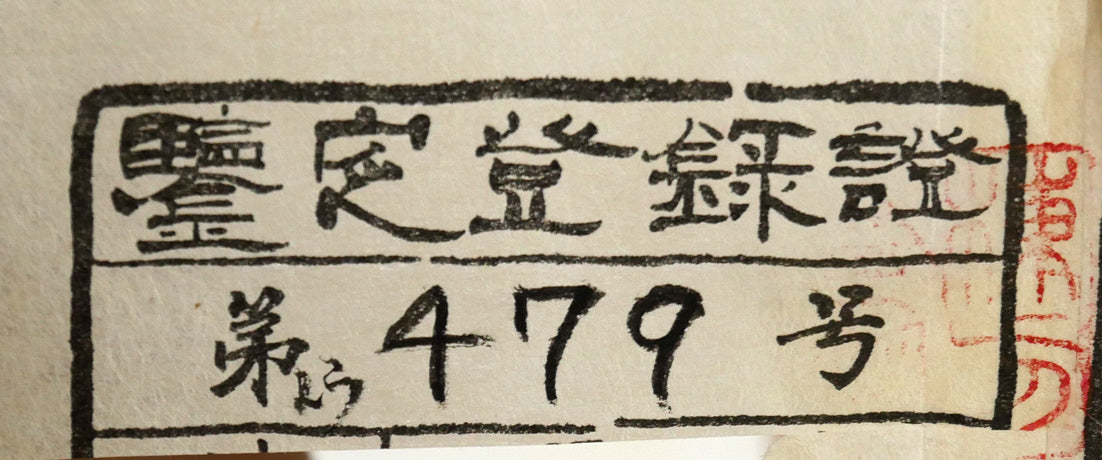 鑒定登録證
第 479 号